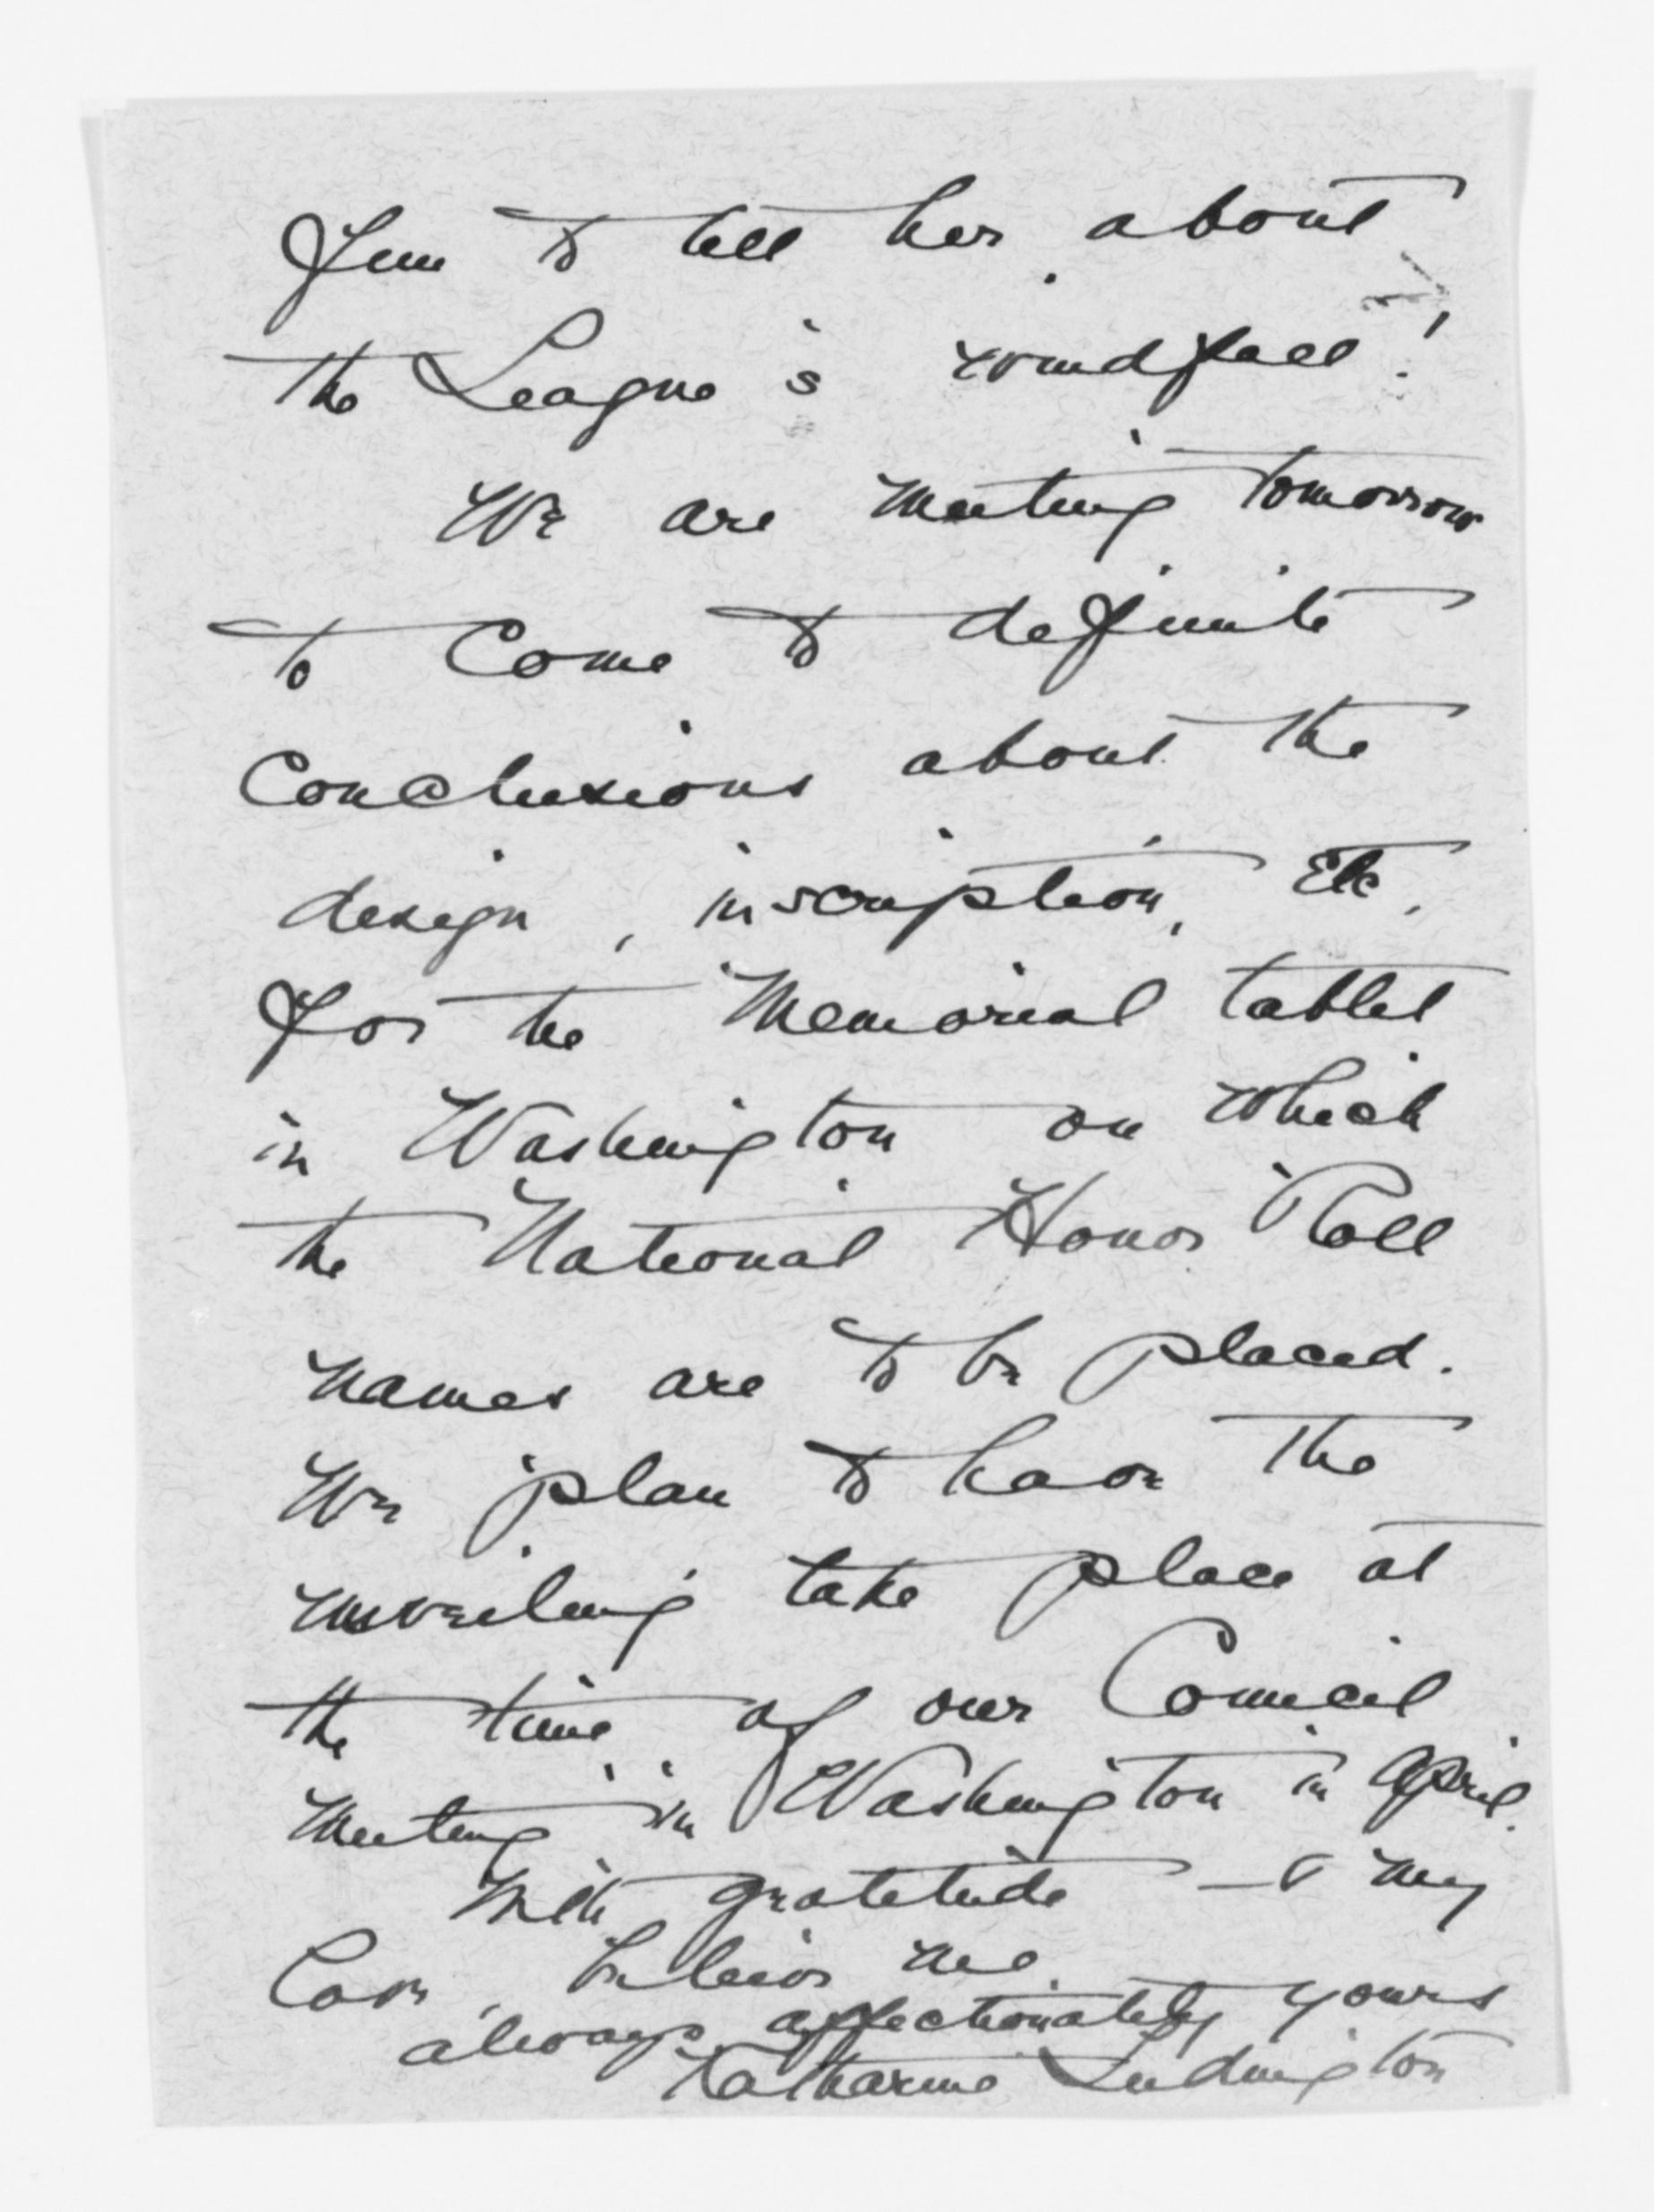 fun to tell her about
the League's windfall!
We are meeting tomorrow
to come to definite
conclusions about the
design, inscription, etc.
for the Memorial tablet
in Washington on which
the National Honor Roll
names are to be placed.
We plan to have the
unveiling take place at
the time of our Council
meeting in Washington in April.
With gratitude - & my
love, believe me
always affectionately yours
Katharine Ludington